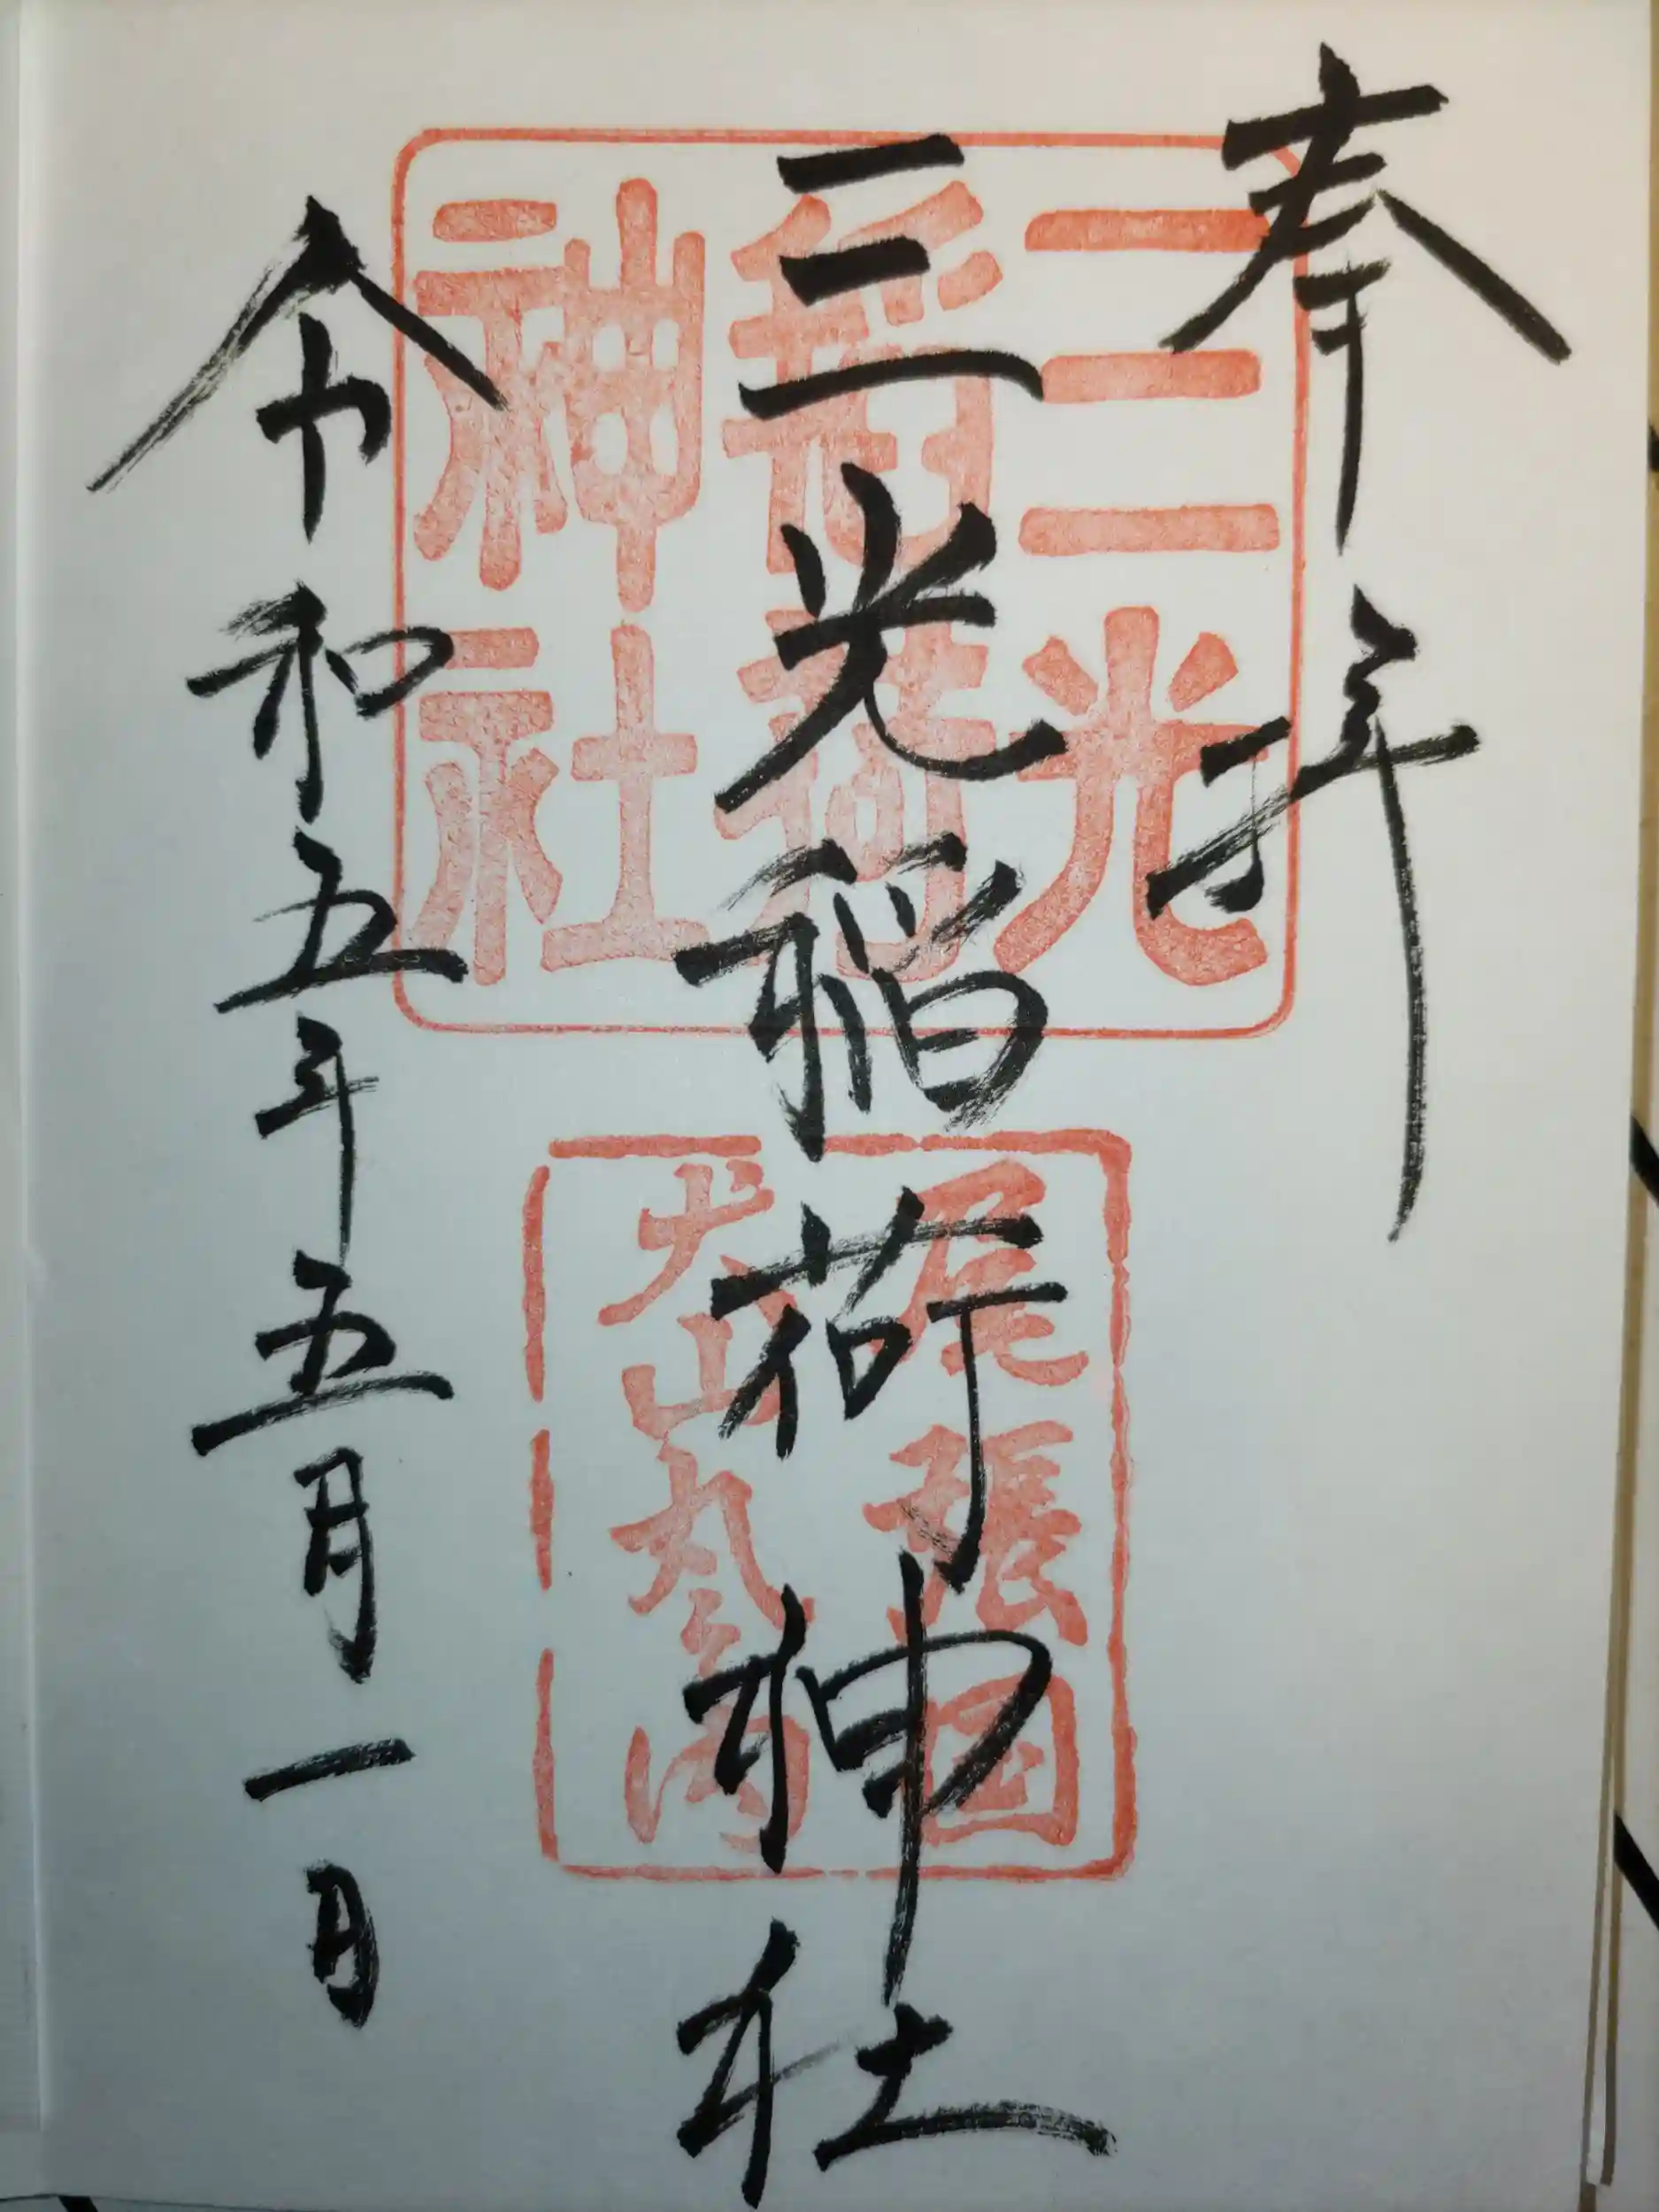 奉拝
三光稲荷神社
令和五年五月一日
三光
稲荷
神社
尾張国
犬山丸之内